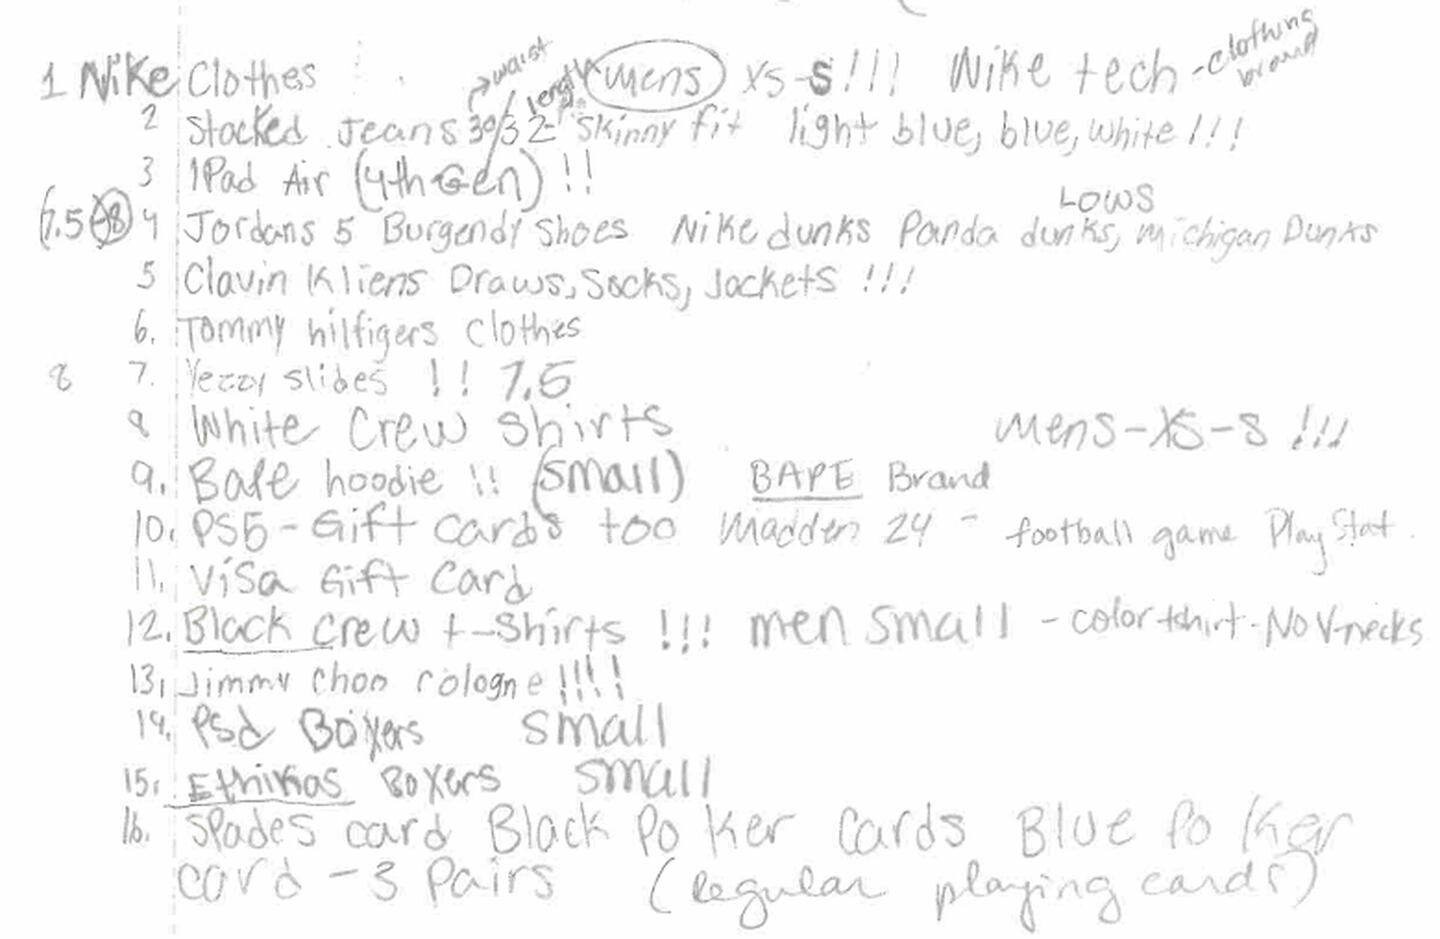 1 Nike Clothes mens XS-S!!! Nike tech - clothing brand
waist
length
2 Stacked Jeans 30/32 - skinny fit light blue, blue, white!!!
3 IPad Air (4th Gen) !!
LOWS
(7.5-8) 4 Jordans 5 Burgendy Shoes Nike dunks Panda dunks, Michigan Dunks
5 Clavin Kliens Draws, Socks, Jackets !!!
6. Tommy hilfigers Clothes
8 7. Yeezy slides !! 7.5
8 White Crew Shirts mens-XS-S !!!
9. Bape hoodie !! (small) BAPE Brand
10. PS5-Gift cards too Madden 24 - football game Play Stat.
11. Visa Gift Card
12. Black crew t-shirts !!! men small - color tshirt - No V-necks
13. Jimmy choo cologne !!!!
14. Psd Boxers small
15. Ethikas Boxers small
16. Spades card Black Poker Cards Blue Poker
card - 3 Pairs (regular playing cards)